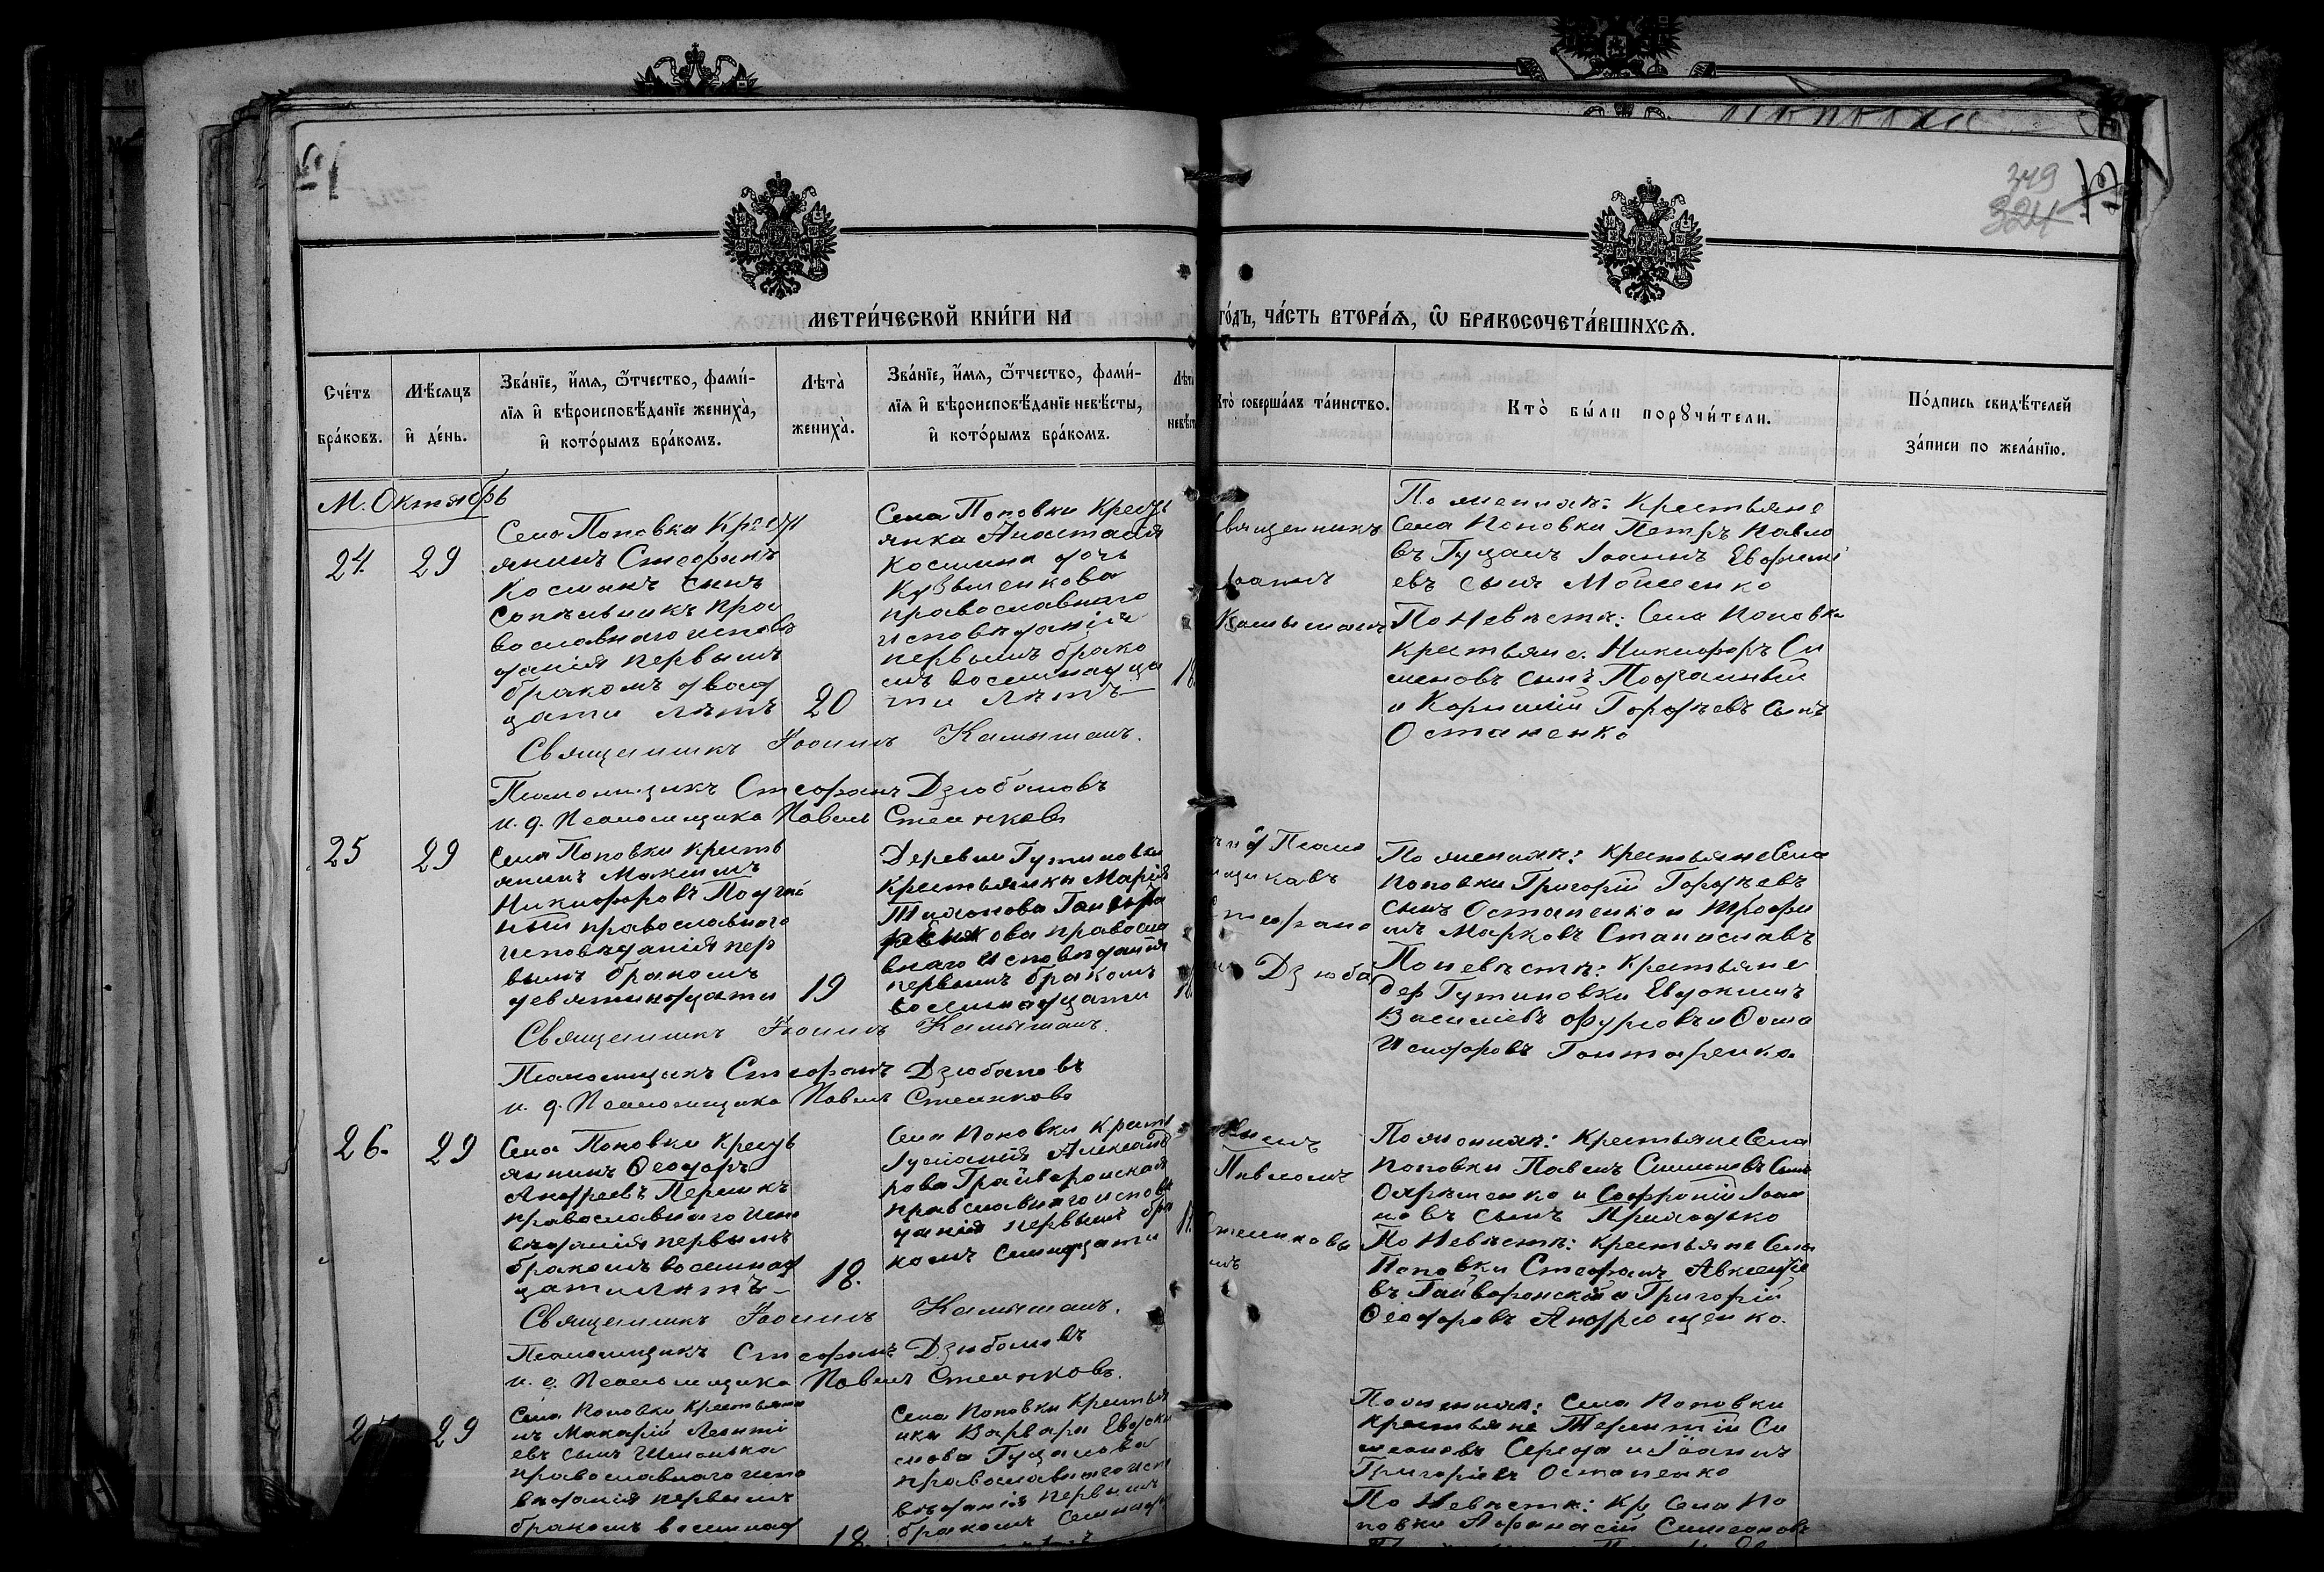 349
324
МЕТРИ́ЧЕСКОЙ КНИ́ГИ НА
ГО́ДЪ, ЧА́СТЬ ВТОРА́Ѧ, Ѿ БРАКОСОЧЕТА́ВШИХСѦ.
Сче́тъ бра́ковъ.
Мѣ́сяцъ и҆ де́нь.
Зва́нїе, и҆́мя, ѻ҆́тчество, фами́-
лїя и҆ вѣроисповѣ́данїе жениха̀,
и҆ кото́рымъ бра́комъ.
Лѣта̀ жениха̀.
Зва́нїе, и҆́мя, ѻ҆́тчество, фами́-
лїя и҆ вѣроисповѣ́данїе невѣ́сты,
и҆ кото́рымъ бра́комъ.
Лѣта̀
Кто̀ соверша́лъ та́инство.
Кто̀ бы́ли порꙋчи́тели.
По́дпись свидѣ́телей
за́писи по жела́нїю.
М. Октябрь
24.
29
Села Поповки Кресть
янинъ Стефанъ
Косминъ сынъ
Сопѣльникъ пра
вославнаго исповѣ
данія первымъ
бракомъ двад
цати лѣтъ
20
Села Поповки Кресть
янка Анастасія
Космина дочь
Кузьменкова
православнаго
исповѣданія
первымъ брако
мъ восемнадца
ти лѣтъ
18
Священникъ
Іоаннъ
Камышанъ
По женихѣ: Крестьяне
Села Поповки Петръ Павло
въ Гуцанъ Іоаннъ Евфимі
евъ сынъ Мойсенко
По Невѣстѣ: Села Поповки
крестьяне: Никифоръ Си
меновъ сынъ Подгайный
и Корнилій Гордѣевъ сынъ
Остапенко
Священникъ Іоаннъ Камышанъ.
Псаломщикъ Стефанъ Дзюбановъ
и. д. Псаломщика Павелъ Стенковъ
25
29
Села Поповки кресть
янинъ Максимъ
Никифоровъ Подгай
ный православнаго
исповѣданія пер
вымъ бракомъ
девятинадцати
19
Деревни Гутиновки
Крестьянка Марія
Тихонова
православ
внаго исповѣданія
первымъ бракомъ
восемнадцати
По женихѣ: крестьяне Села
Поповки Григорій Гордѣевъ
сынъ Остапенко и Трофи
мъ Марковъ Станиславъ
По невѣстѣ: крестьяне
дер Гутиновки Евдокимъ
Василіевъ Фурсовъ и Ѳома
Исидоровъ Гонтаренко
Священникъ Іоаннъ Камышанъ.
Псаломщикъ Стефанъ Дзюбановъ
и. д. Псаломщика Павелъ Стенковъ
26.
29
Села Поповки Кресть
янинъ Ѳеодоръ
Андреевъ Першкъ
православнаго испо
вѣданія первымъ
бракомъ восемнад
цати лѣтъ
18.
Села Поповки крест
Гликерія Александ
рова Грайворонская
православнаго исповѣ
данія первымъ бра
комъ семнадцати
17.
Павломъ
Стенковы
мъ
По женихѣ: Крестьяне Села
Поповки Павелъ Симеоновъ Сынъ
и Софроній Іоан
новъ сынъ Приходько
По Невѣстѣ: крестьяне Села
Поповки Стефанъ Авксенте
въ Гайворонскій и Григорій
Ѳеодоровъ Андрющенко.
Священникъ Іоаннъ Камышанъ.
Псаломщикъ Стефанъ Дзюбановъ
и. д. Псаломщика Павелъ Стенковъ.
29
Села Поповки Крестьяни
нъ Макарій Леонті
евъ сынъ
православнаго испо
вѣданія первымъ
бракомъ восемнад
18
Села Поповки Крестья
нка Варвара Евдоки
мова Гуцанова
православнаго исп
вѣданія первымъ
бракомъ семнад
По женихѣ: Села Поповки
крестьяне Терентій Си
меоновъ Середа и Іоаннъ
Григоріевъ Остапенко
По Невѣстѣ: Кр Села По
повки Афанасій Симеоновъ